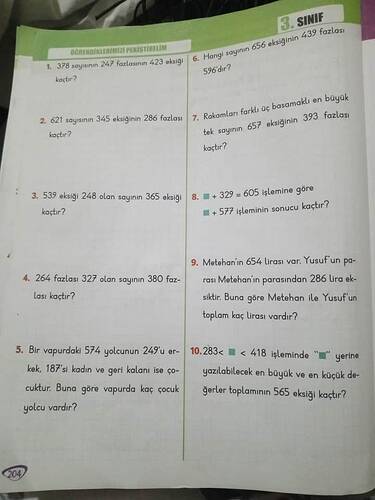 3. SINIF
ÖĞRENDİKLERİMİZİ PEKİŞTİRELİM
1. 378 sayısının 247 fazlasının 423 eksiği
kaçtır?
2. 621 sayısının 345 eksiğinin 286 fazlası
kaçtır?
3. 539 eksiği 248 olan sayının 365 eksiği
kaçtır?
4. 264 fazlası 327 olan sayının 380 faz-
lası kaçtır?
5. Bir vapurdaki 574 yolcunun 249'u er-
kek, 187'si kadın ve geri kalanı ise ço-
cuktur. Buna göre vapurda kaç çocuk
yolcu vardır?
6. Hangi sayının 656 eksiğinin 439 fazlası
596'dır?
7. Rakamları farklı üç basamaklı en büyük
tek sayının 657 eksiğinin 393 fazlası
kaçtır?
8. ■ + 329 = 605 işlemine göre
■ + 577 işleminin sonucu kaçtır?
9. Metehan'ın 654 lirası var. Yusuf'un pa-
rası Metehan'ın parasından 286 lira ek-
siktir. Buna göre Metehan ile Yusuf'un
toplam kaç lirası vardır?
10. 283< ■ < 418 işleminde "■" yerine
yazılabilecek en büyük ve en küçük de-
ğerler toplamının 565 eksiği kaçtır?
204